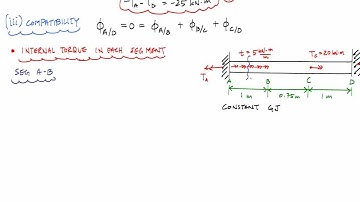 TA - TD = -25 kN·m
(iii) COMPATIBILITY ϕA/D = ϕA/B + ϕB/C + ϕC/D
• INTERNAL TORQUE IN EACH SEGMENT
SEG A-B
t = 5 kN·m/m
TC = 20 kN·m
TA
A B C D
1 m 0.75 m 1 m
CONSTANT GJ